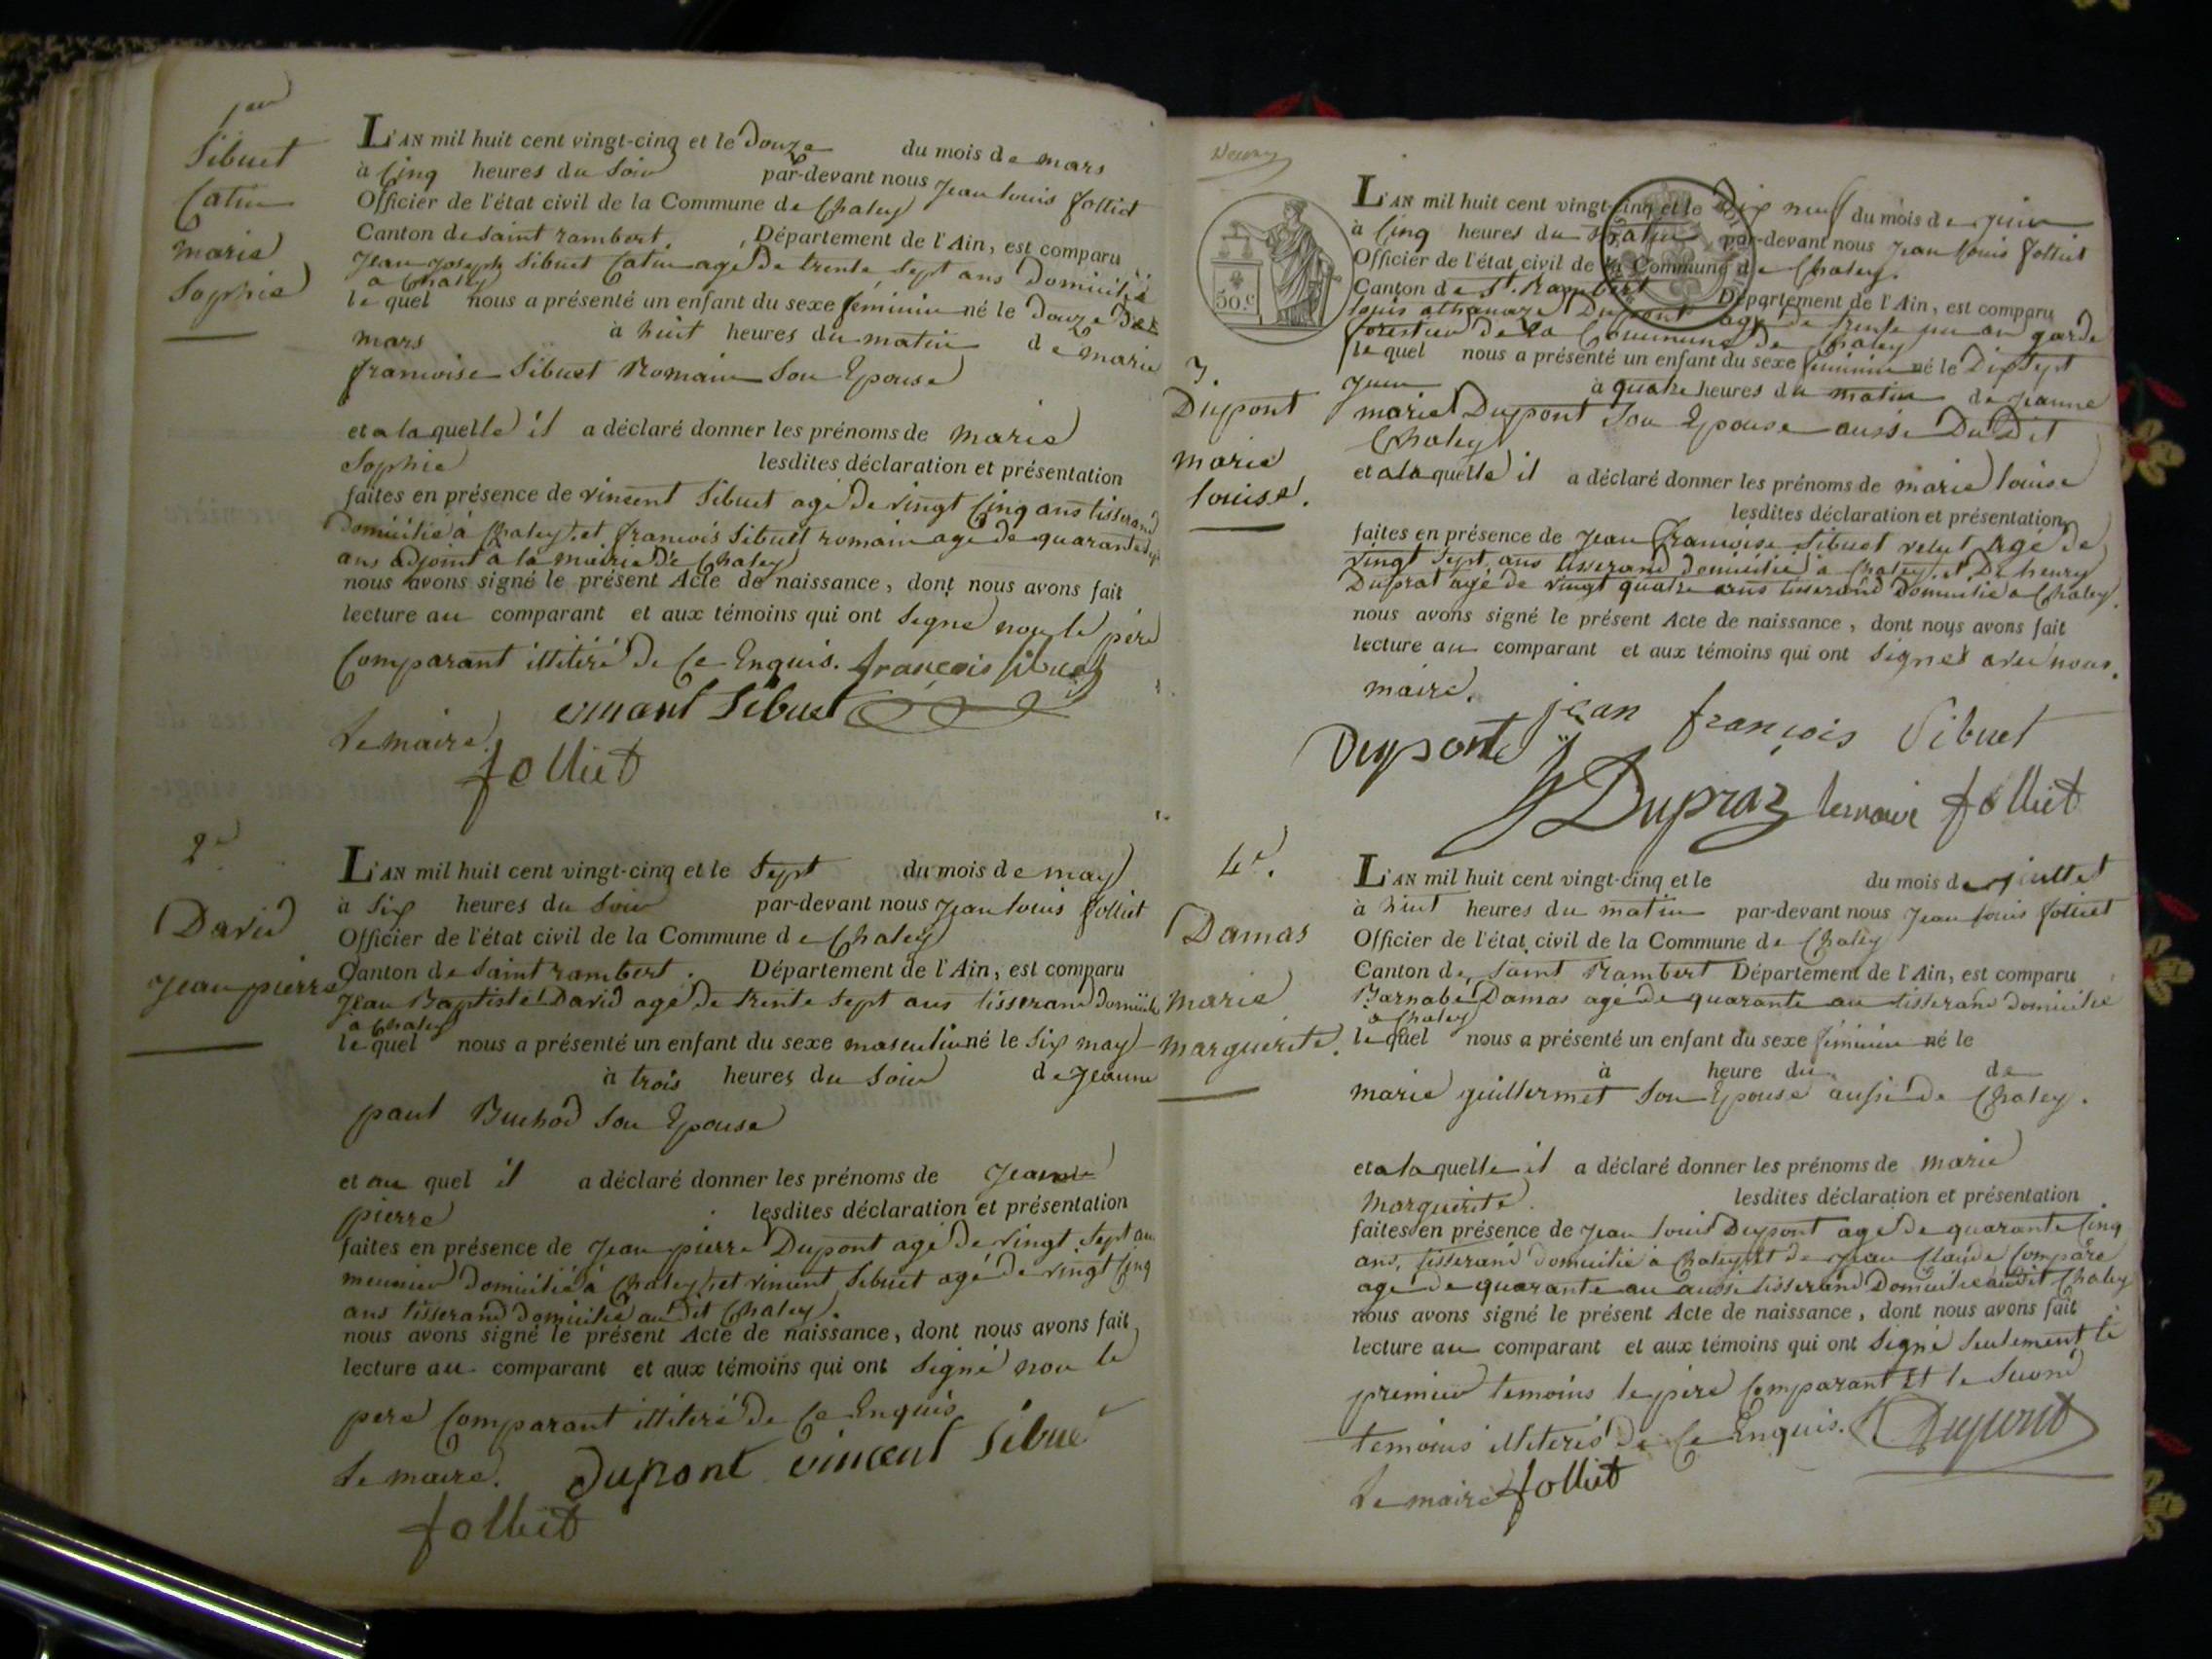 1er
Sibuet
Catin
marie
Sophie
L'AN mil huit cent vingt-cinq et le douze du mois de mars
à cinq heures du soir par-devant nous jean louis folliet
Officier de l'état civil de la Commune de Chaley
Canton de saint rambert. Département de l'Ain, est comparu
jean joseph Sibuet Catin age de trente sept ans domicilié
a Chaley
le quel nous a présenté un enfant du sexe féminin né le douze de
mars à huit heures du matin de marie
francoise Sibuet Romain son Epouse
et a laquelle il a déclaré donner les prénoms de marie
Sophie lesdites déclaration et présentation
faites en présence de vincent Sibuet agé de vingt cinq ans tisserand
domicilié à Chaley, et francois Sibuet romain agé de quarante
ans adjoint à la mairie de Chaley
nous avons signé le présent Acte de naissance, dont nous avons fait
lecture au comparant et aux témoins qui ont signé non le père
Comparant illiteré de ce Enquis. françois sibuet
Sibuet
Le maire.
folliet
2e
David
jean pierre
L'AN mil huit cent vingt-cinq et le sept du mois de may
à six heures du soir par-devant nous jean louis folliet
Officier de l'état civil de la Commune de Chaley
Canton de saint rambert. Département de l'Ain, est comparu
jean Baptiste David agé de trente sept ans tisserand domicilié
a Chaley
le quel nous a présenté un enfant du sexe masculin né le six may
à trois heures du soir de jeanne
paul Buchod son Epouse
et au quel il a déclaré donner les prénoms de jean
pierre lesdites déclaration et présentation
faites en présence de jean pierre Dupont agé de vingt sept an
meunier domicilié à Chaley, et vincent Sibuet agé de vingt cinq
ans tisserand domicilié au dit Chaley.
nous avons signé le présent Acte de naissance, dont nous avons fait
lecture au comparant et aux témoins qui ont signé non le
pere Comparant illiteré de ce Enquis
Le maire. Dupont vincent Sibuet
folliet
30.c
3.
Dupont
marie
louise.
L'AN mil huit cent vingt-cinq et le dix neuf du mois de juin
à cinq heures du matin par-devant nous jean louis folliet
Officier de l'état civil de la Commune de Chaley.
Canton de St. Rambert Département de l'Ain, est comparu
louis athanaze Dupont agé de trente un an garde
forestier de la Commune de Chaley
le quel nous a présenté un enfant du sexe féminin né le dix sept
juin à quatre heures du matin de jeanne
marie Dupont son Epouse aussi Du Dit
Chaley
et a la quelle il a déclaré donner les prénoms de marie louise
lesdites déclaration et présentation
faites en présence de jean francoise Sibuet agé de
vingt sept ans tisserand domicilié à Chaley, et De henry
Duprat agé de vingt quatre ans tisserand domicilié a Chaley.
nous avons signé le présent Acte de naissance, dont nous avons fait
lecture au comparant et aux témoins qui ont signés avec nous.
maire.
jean françois Sibuet
Dupont
Dupraz le maire folliet
4e.
Damas
marie
marguerite.
L'AN mil huit cent vingt-cinq et le du mois de juillet
à huit heures du matin par-devant nous jean louis folliet
Officier de l'état civil de la Commune de Chaley
Canton de saint Rambert Département de l'Ain, est comparu
Barnabé Damas agé de quarante an tisserand domicilié
a Chaley
le quel nous a présenté un enfant du sexe féminin né le
à heure du de
marie guillermet son Epouse aussi de Chaley.
et a la quelle il a déclaré donner les prénoms de marie
marguerite. lesdites déclaration et présentation
faites en présence de jean louis Dupont agé de quarante cinq
ans, tisserand domicilié à Chaley et de jean Claude Compare
agé de quarante an aussi tisserand domicilié audit Chaley
nous avons signé le présent Acte de naissance, dont nous avons fait
lecture au comparant et aux témoins qui ont signé seulement le
premier temoins le père Comparant et le second
temoins illiterés de ce Enquis. Dupont
Le maire folliet